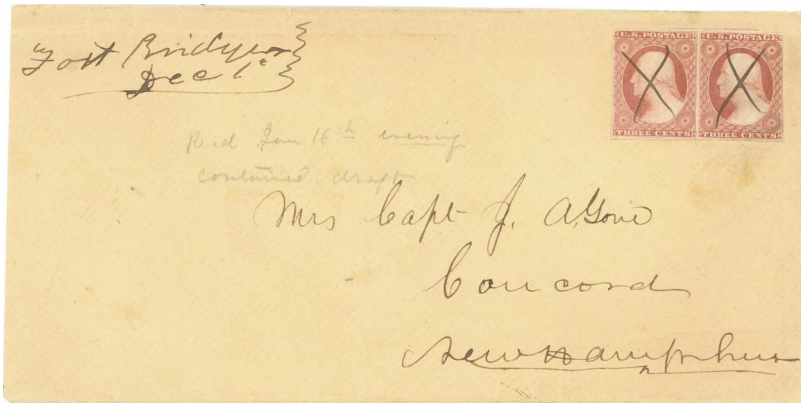 Fort Bridger
Dec 1st
U.S. POSTAGE
THREE CENTS
U.S. POSTAGE
THREE CENTS
Recd Jan 16th evening
contained draft
Mrs Capt J. A. Gove
Concord
New Hampshire